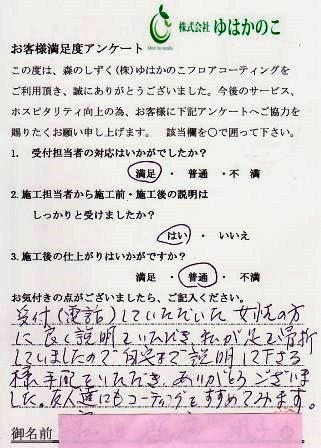 株式会社 ゆはかのこ
お客様満足度アンケート
この度は、森のしずく(株)ゆはかのこフロアコーティングを
ご利用頂き、誠にありがとうございました。今後のサービス、
ホスピタリティ向上の為、お客様に下記アンケートへご協力を
賜りたくお願い申し上げます。 該当欄を○で囲って下さい。
1. 受付担当者の対応はいかがでしたか?
満足 ・ 普通 ・ 不満
2. 施工担当者から施工前・施工後の説明は
しっかりと受けましたか?
はい ・ いいえ
3. 施工後の仕上がりはいかがですか?
満足 ・ 普通 ・ 不満
お気付きの点がございましたら、ご記入ください。
受付(電話)していただいた女性の方
に良く説明していただき、私が足を骨折
していましたので自宅まで説明して下さる
様手配をいただき、ありがとうございま
した。友人達にもコーティングをすすめてみます。
御名前